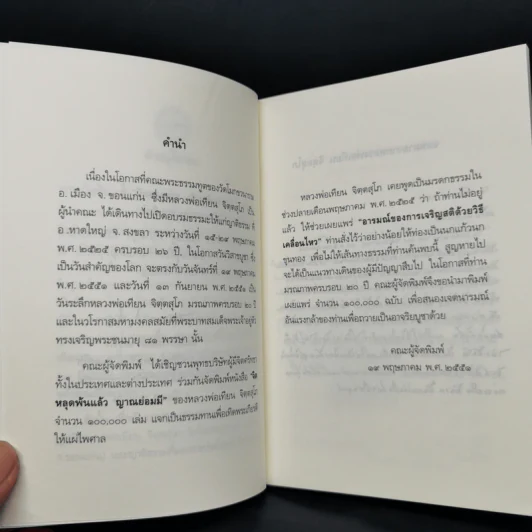 คำนำ
เนื่องในโอกาสที่คณะพระธรรมทูตของวัดโมกขวนาราม
อ. เมือง จ. ขอนแก่น ซึ่งมีหลวงพ่อเทียน จิตฺตสุโภ เป็น
ผู้นำคณะ ได้เดินทางไปเปิดอบรมธรรมะให้แก่ญาติธรรม
อ. หาดใหญ่ จ. สงขลา ระหว่างวันที่ ๑๕-๒๙ พฤษภาคม
พ.ศ. ๒๕๒๕ ครบรอบ ๒๖ ปี. ในโอกาสวันวิสาขบูชา ซึ่ง
เป็นวันสำคัญของโลก จะตรงกับวันจันทร์ที่ ๑๙ พฤษภาคม
พ.ศ. ๒๕๕๑ และวันที่ ๑๓ กันยายน พ.ศ. ๒๕๕๑ เป็น
วันระลึกหลวงพ่อเทียน จิตฺตสุโภ มรณภาพครบรอบ ๒๐ ปี
และในวโรกาสมหามงคลสมัยที่พระบาทสมเด็จพระเจ้าอยู่หัว
ทรงเจริญพระชนมายุ ๘๑ พรรษา นั้น
คณะผู้จัดพิมพ์ ได้เชิญชวนพุทธบริษัทผู้มีจิตศรัทธา
ทั้งในประเทศและต่างประเทศ ร่วมกันจัดพิมพ์หนังสือ "จิต
หลุดพ้นแล้ว ญาณย่อมมี" ของหลวงพ่อเทียน จิตฺตสุโภ
จำนวน ๑๐๐,๐๐๐ เล่ม แจกเป็นธรรมทานเพื่อเทิดพระเกียรติ
ให้แผ่ไพศาล
หลวงพ่อเทียน จิตฺตสุโภ เคยพูดเป็นมรดกธรรมใน
ช่วงปลายเดือนพฤษภาคม พ.ศ. ๒๕๒๕ ว่า ถ้าท่านไม่อยู่
แล้ว ให้ช่วยเผยแพร่ "อารมณ์ของการเจริญสติด้วยวิธี
เคลื่อนไหว" ท่านสั่งไว้ว่าอย่างน้อยให้ท่องเป็นนกแก้วนก
ขุนทอง เพื่อไม่ให้เส้นทางธรรมที่ท่านค้นพบนี้ สูญหายไป
จะได้เป็นแนวทางเดินของผู้มีปัญญาสืบไป ในโอกาสที่ท่าน
มรณภาพครบรอบ ๒๐ ปี คณะผู้จัดพิมพ์จึงขอนำมาพิมพ์
เผยแพร่ จำนวน ๑๐๐,๐๐๐ ฉบับ เพื่อสนองเจตนารมณ์
อันแรงกล้าของท่านเพื่อถวายเป็นอาจริยบูชาด้วย
คณะผู้จัดพิมพ์
๑๙ พฤษภาคม พ.ศ. ๒๕๕๑